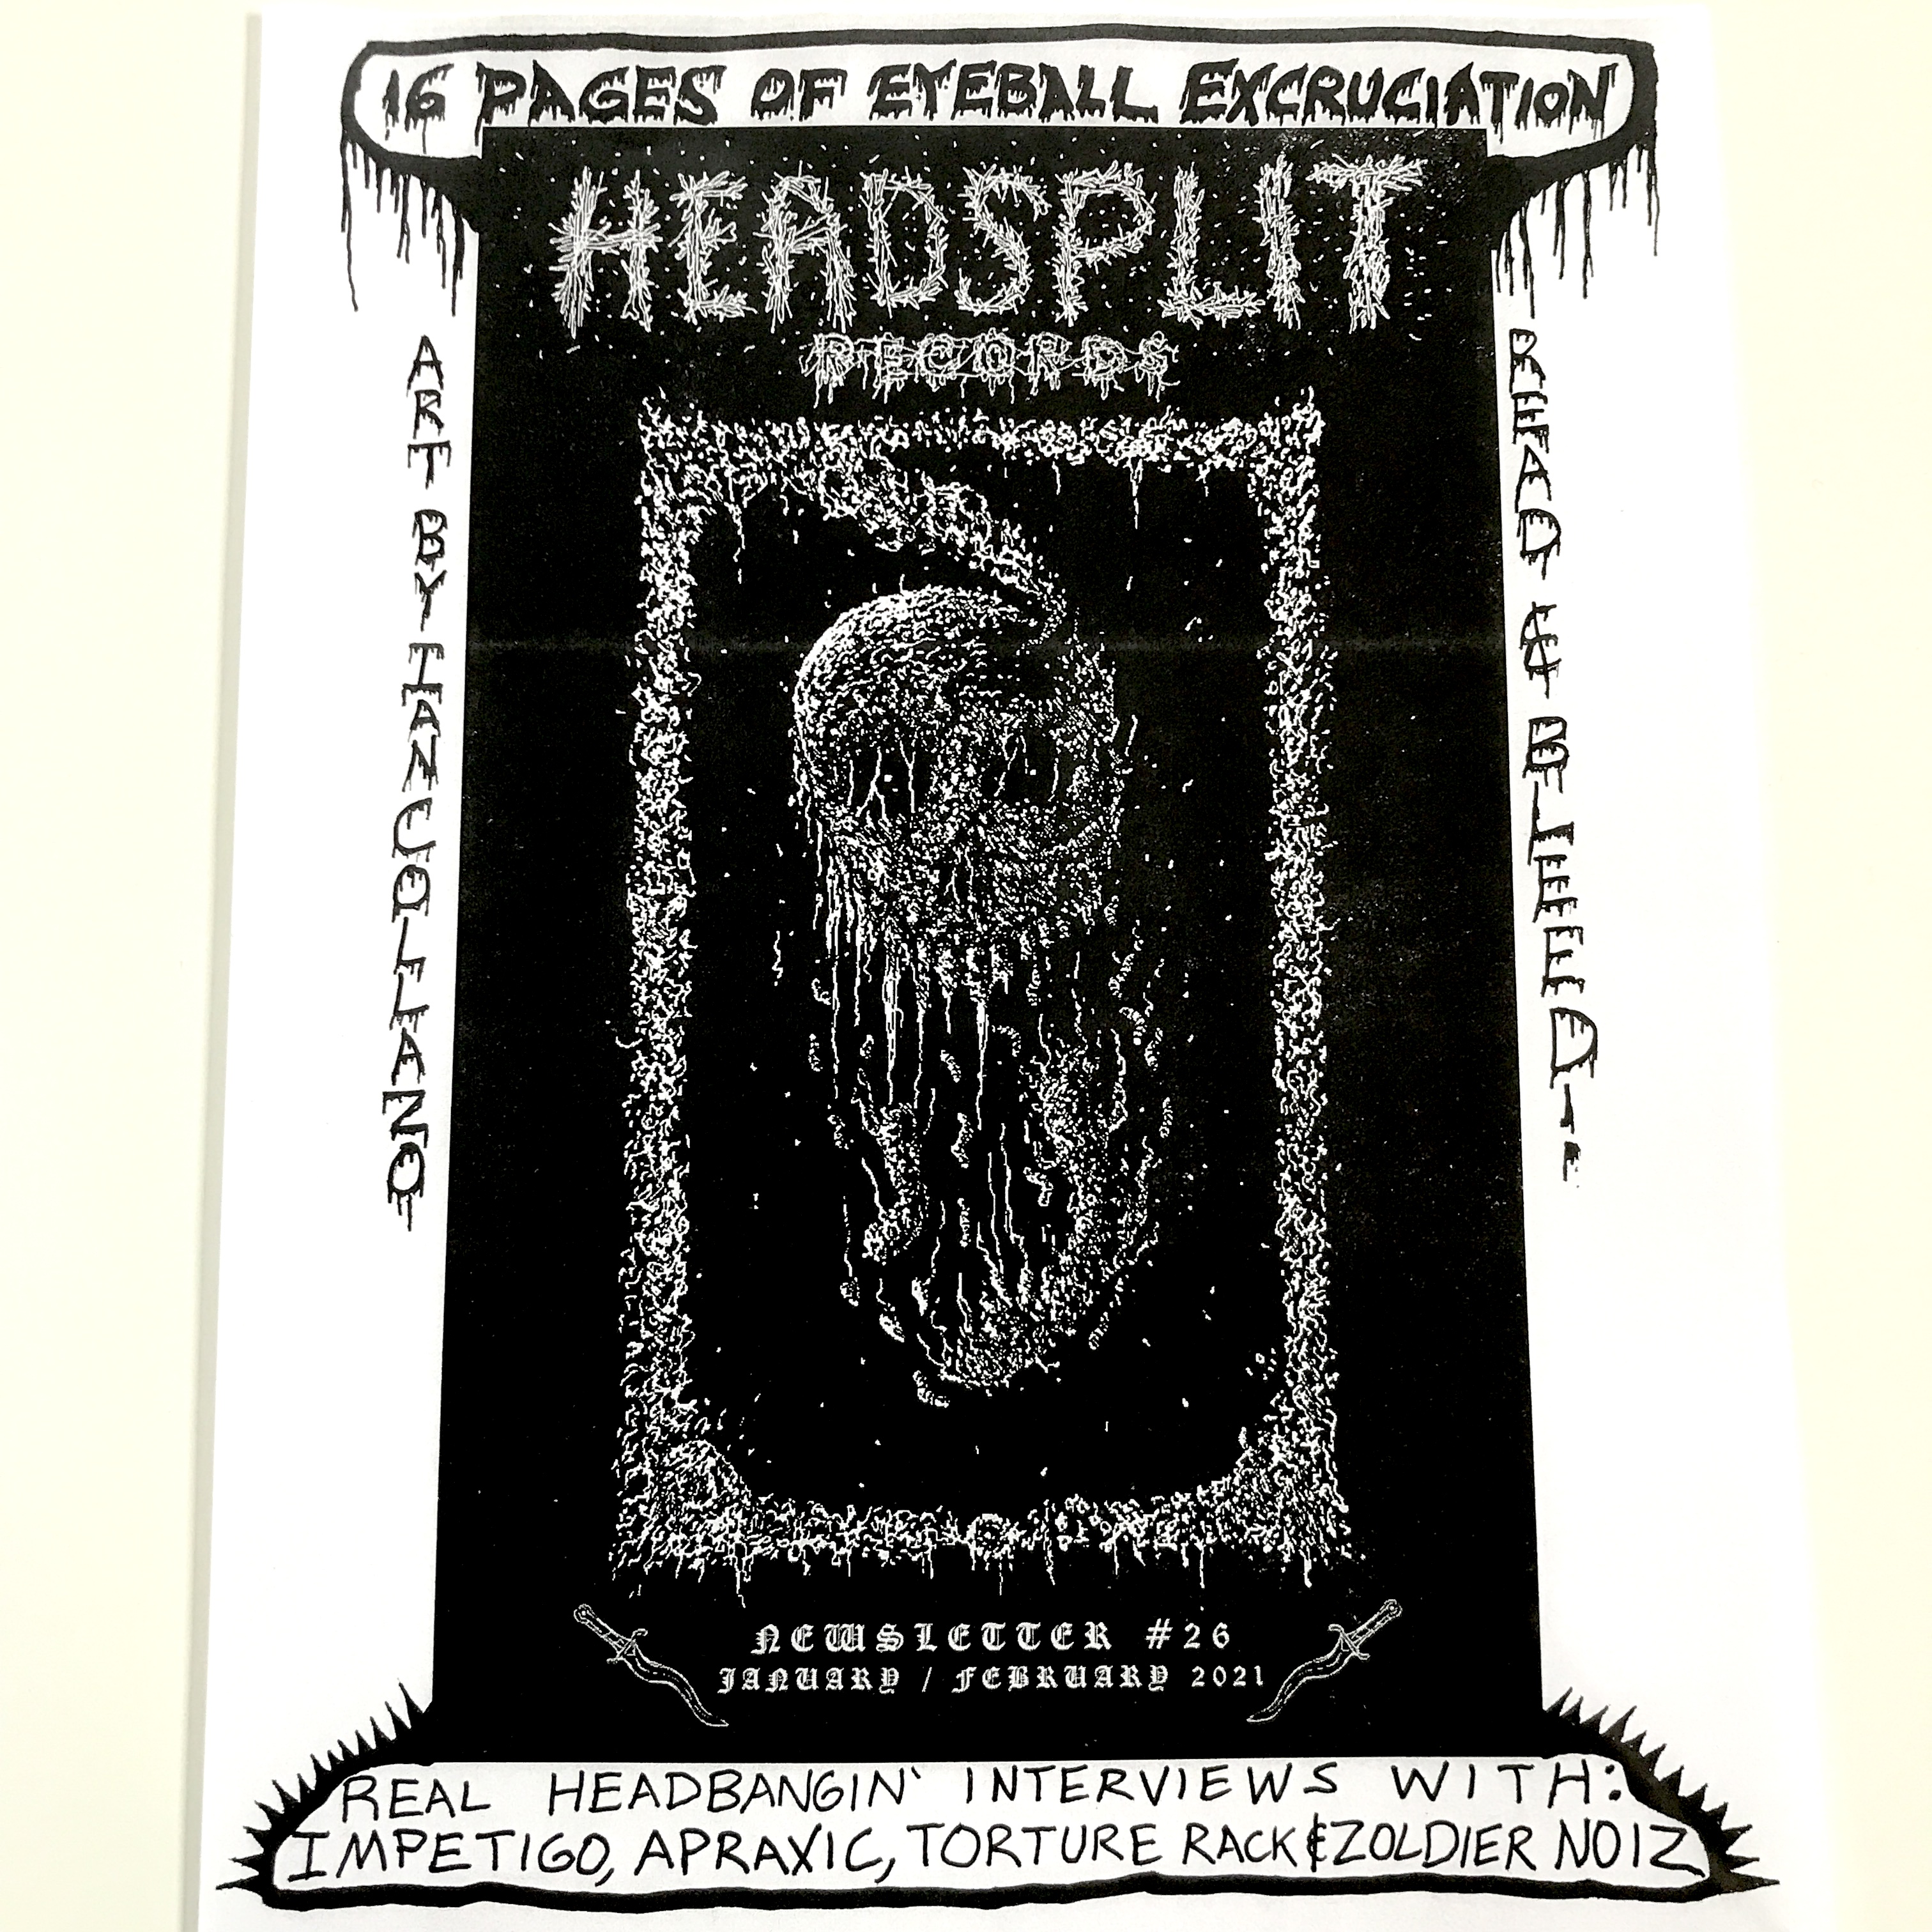 16 PAGES OF EYEBALL EXCRUCIATION
HEADSPLIT
RECORDS
ART BY IAN COLLAZO
READ & BLEED!
NEWSLETTER #26
JANUARY / FEBRUARY 2021
REAL HEADBANGIN' INTERVIEWS WITH:
IMPETIGO, APRAXIC, TORTURE RACK & ZOLDIER NOIZ